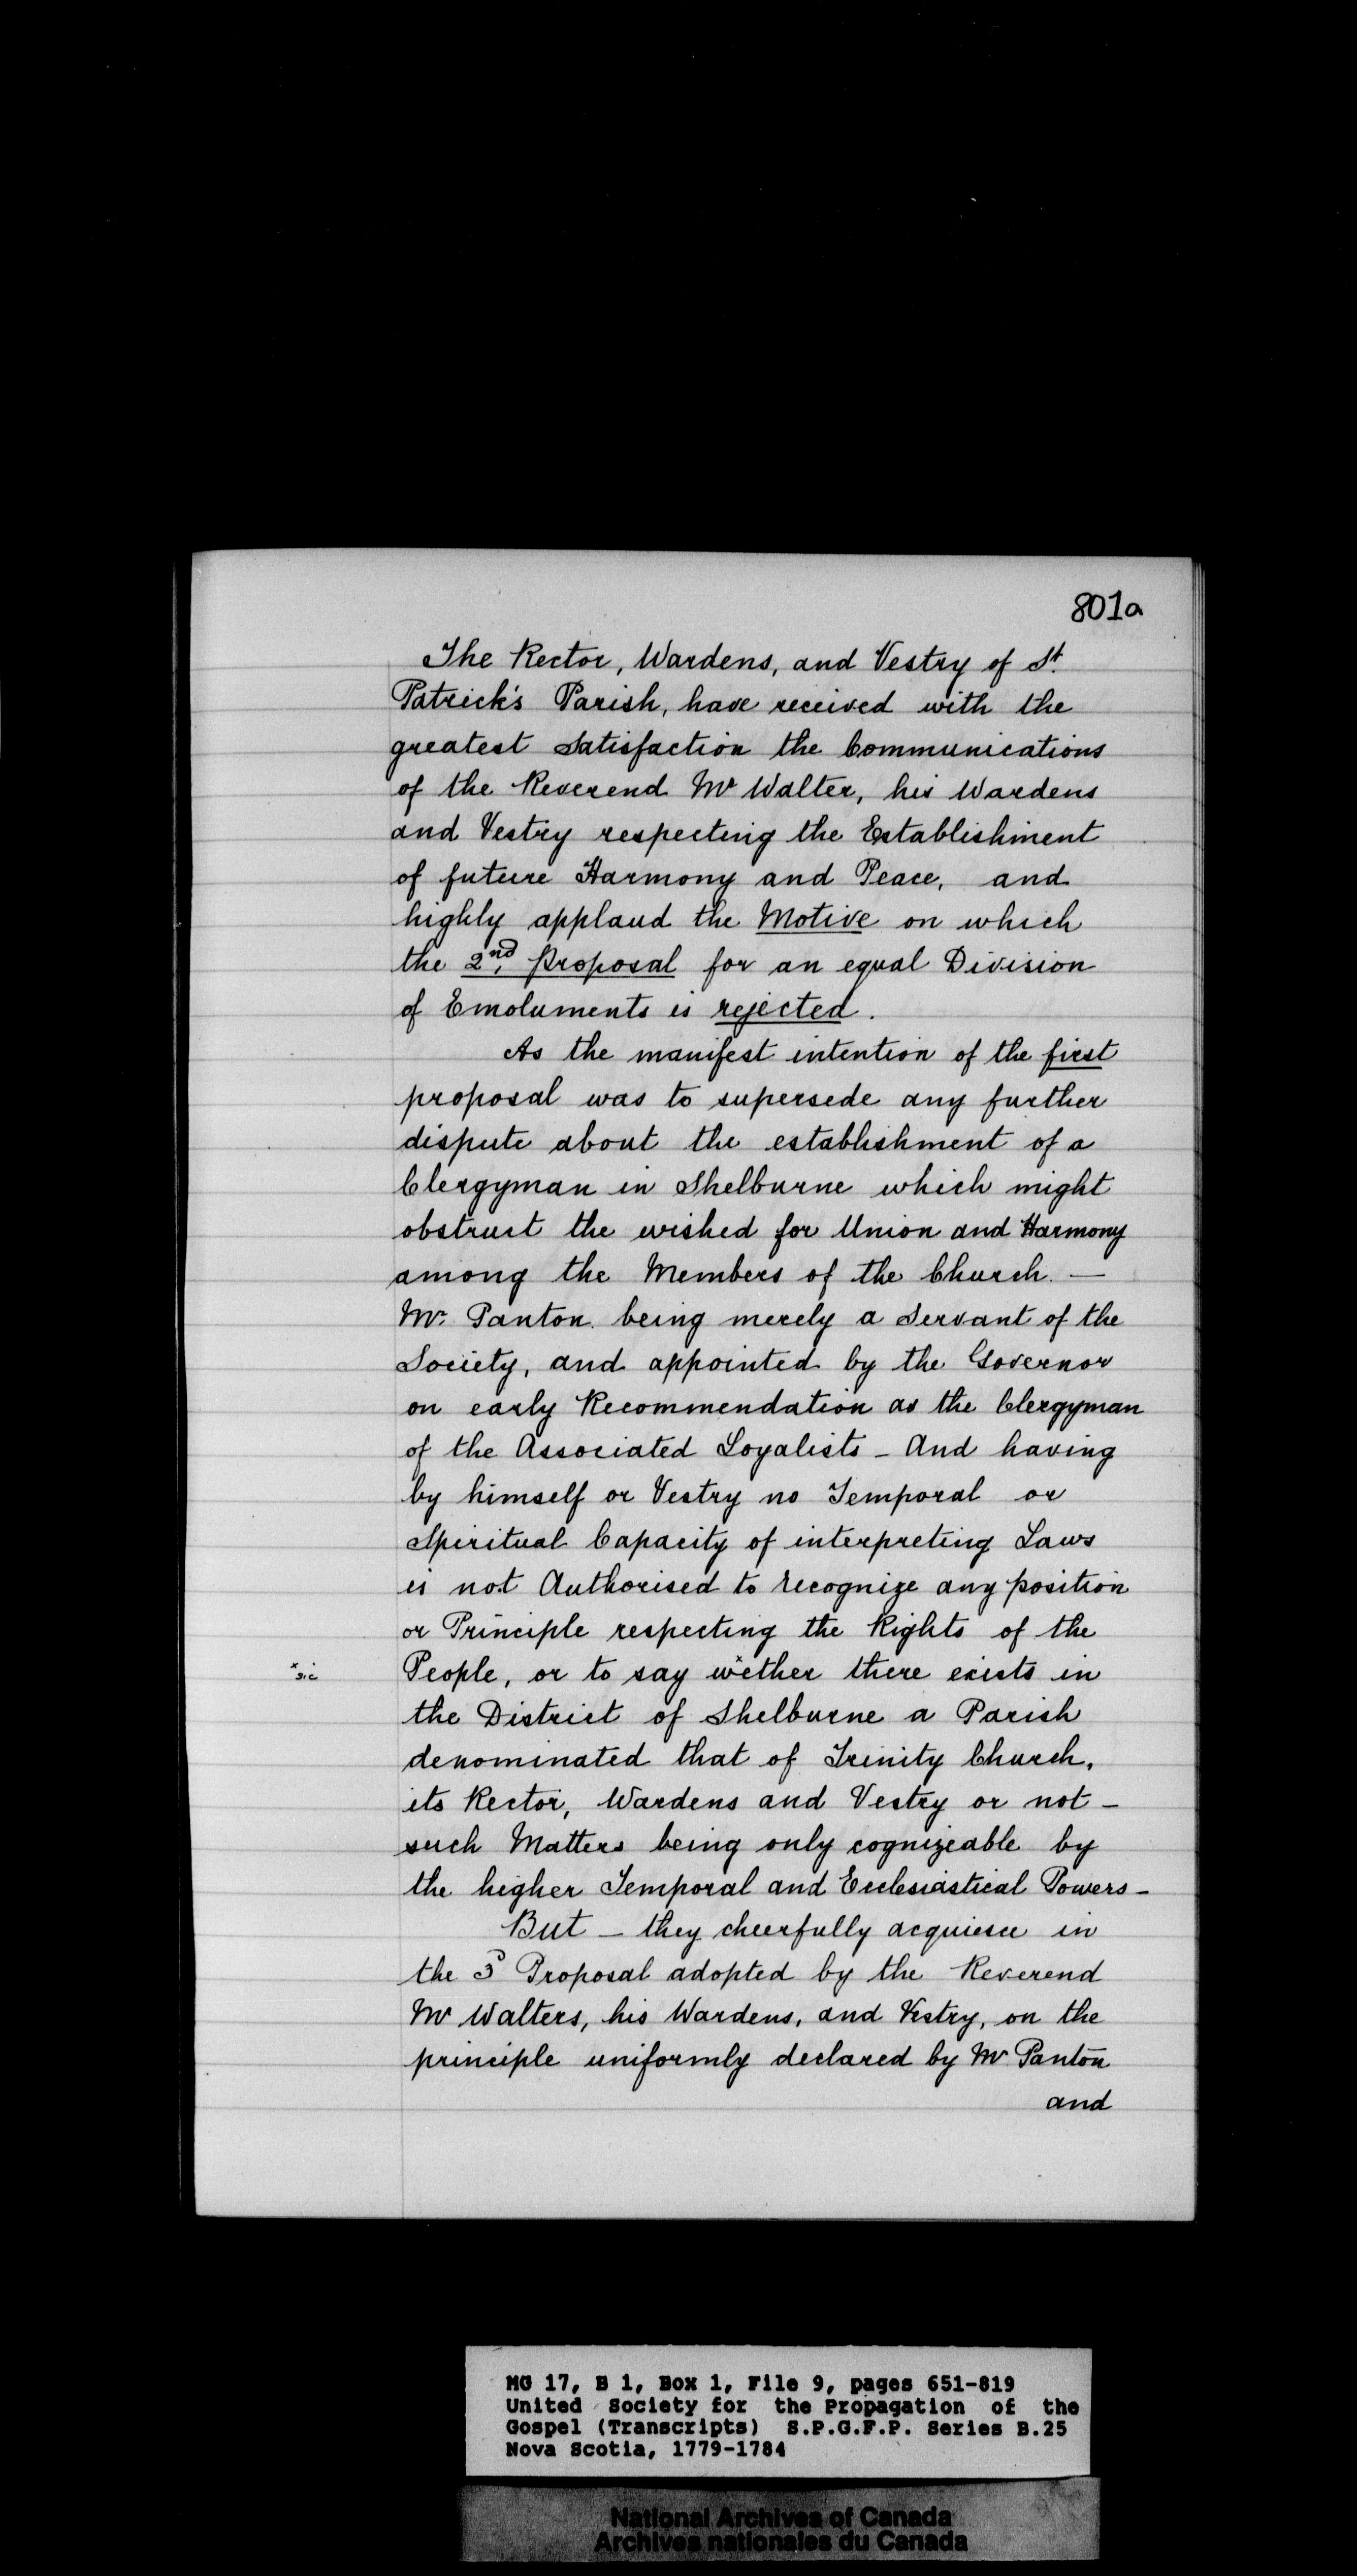 801a
The Rector, Wardens, and Vestry of St.
Patrick's Parish, have received with the
greatest Satisfaction the Communications
of the Reverend Mr Walter, his Wardens
and Vestry respecting the Establishment
of future Harmony and Peace, and
highly applaud the Motive on which
the 2nd, Proposal for an equal Division
of Emoluments is rejected.
As the manifest intention of the first
proposal was to supersede any further
dispute about the establishment of a
Clergyman in Shelburne which might
obstruct the wished for Union and Harmony
among the Members of the Church. —
Mr. Panton being merely a Servant of the
Society, and appointed by the Governor
on early Recommendation as the Clergyman
of the Associated Loyalists - And having
by himself or Vestry no Temporal or
Spiritual Capacity of interpreting Laws
is not Authorised to recognize any position
or Principle respecting the Rights of the
x sic
People, or to say wxether there exists in
the District of Shelburne a Parish
denominated that of Trinity Church,
its Rector, Wardens and Vestry or not -
such Matters being only cognizeable by
the higher Temporal and Ecclesiastical Powers -
But - they cheerfully acquiesce in
the 3d Proposal adopted by the Reverend
Mr Walters, his Wardens, and Vestry, on the
principle uniformly declared by Mr Panton
and
MG 17, B 1, Box 1, File 9, pages 651-819
United Society for the Propagation of the
Gospel (Transcripts) S.P.G.F.P. Series B.25
Nova Scotia, 1779-1784
National Archives of Canada
Archives nationales du Canada